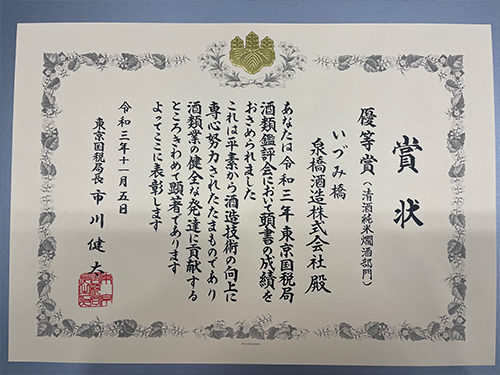 賞状
優等賞(清酒純米燗酒部門)
いづみ橋
泉橋酒造株式会社殿
あなたは令和三年東京国税局
酒類鑑評会において頭書の成績を
おさめられました
これは平素から酒造技術の向上に
専心努力されたたまものであり
酒類業の健全な発達に貢献する
ところきわめて顕著であります
よってここに表彰します
令和三年十一月五日
東京国税局長 市川健太